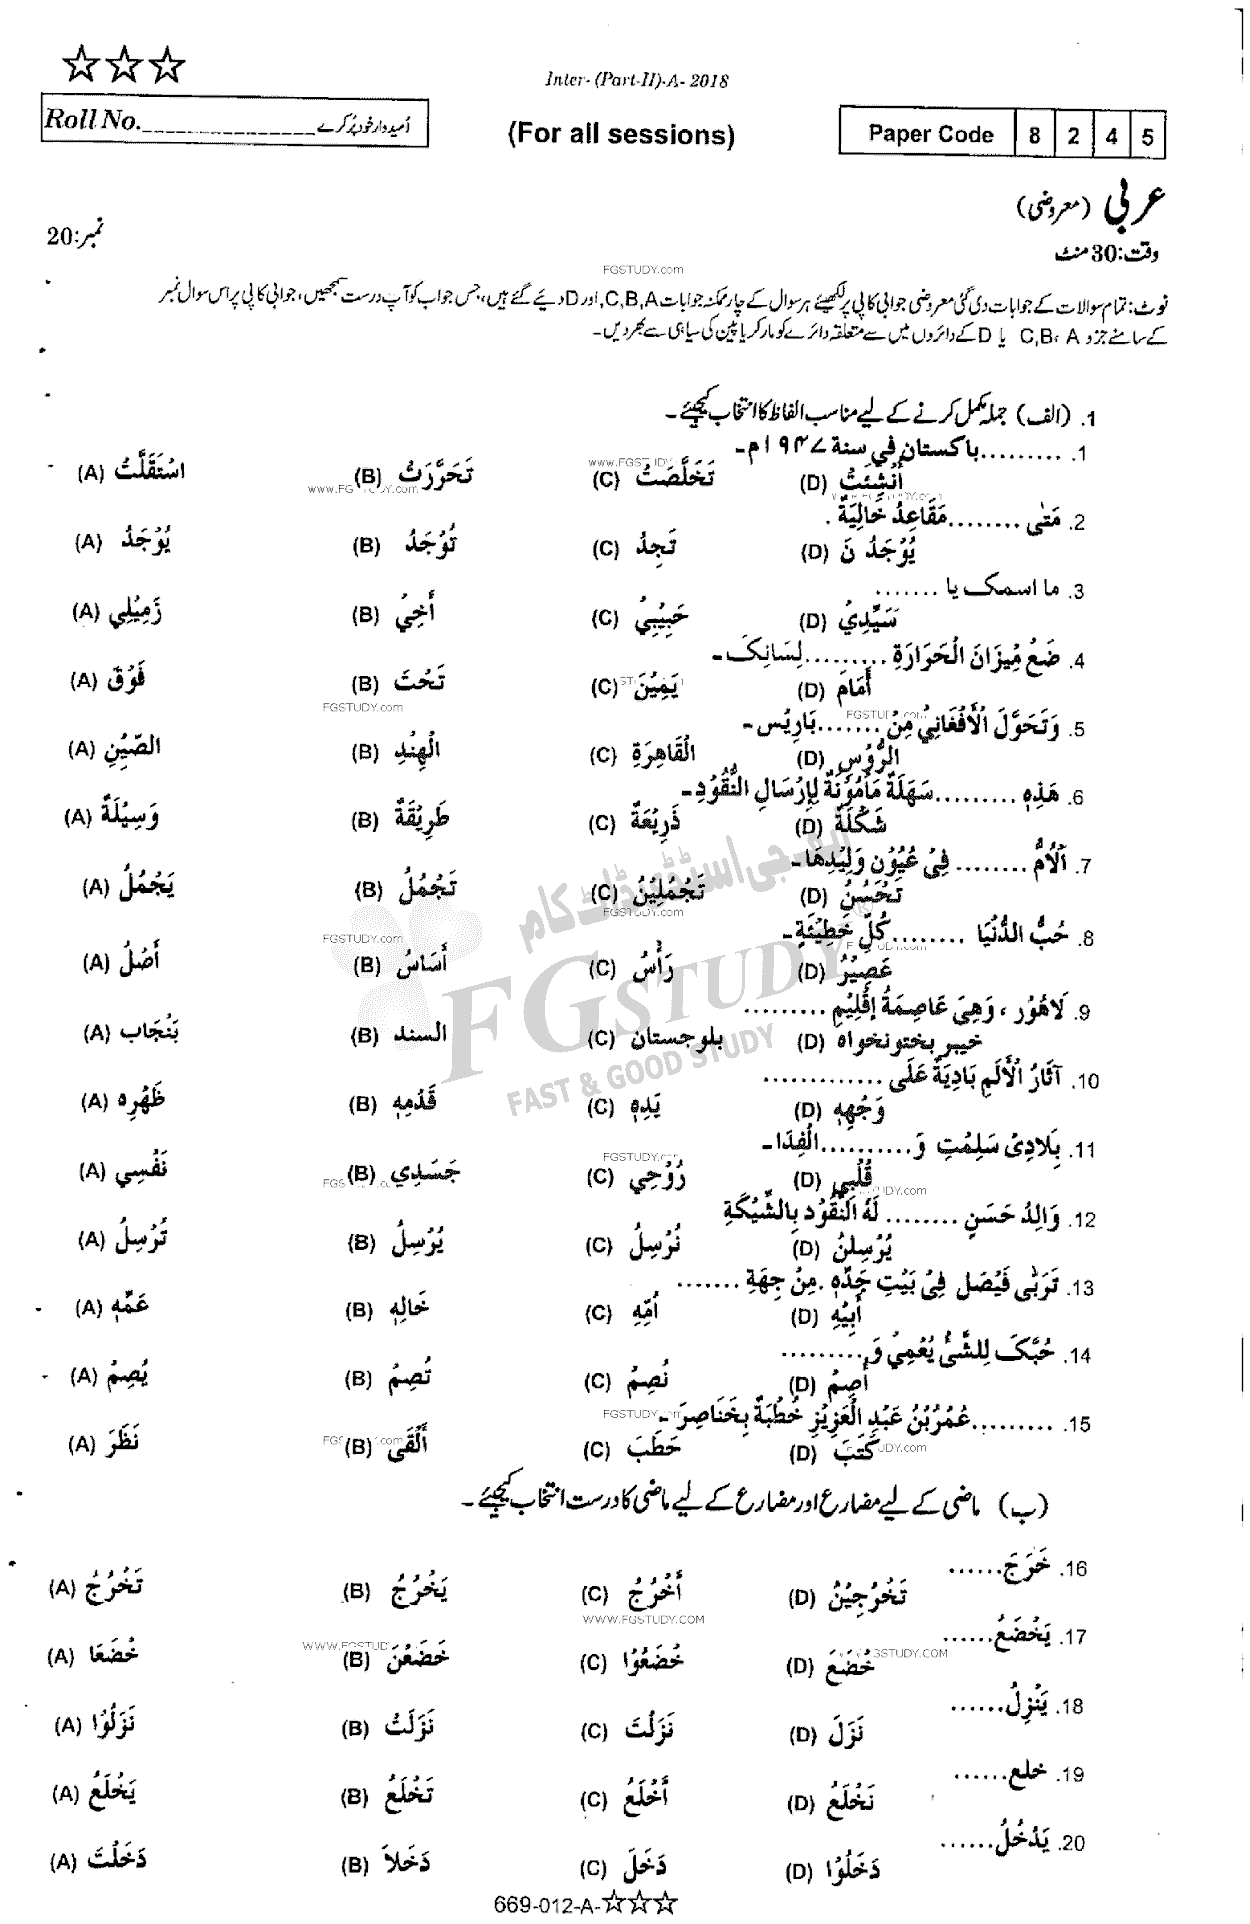 Inter- (Part-II)-A- 2018
Roll No.________________ اُمیدوار خود پُر کرے
(For all sessions)
Paper Code 8 2 4 5
عربی (معروضی)
وقت: 30 منٹ
نمبر: 20
FGSTUDY.com
نوٹ: تمام سوالات کے جوابات دی گئی معروضی جوابی کاپی پر لکھیئے ہر سوال کے چار ممکنہ جوابات C,B,A اور D دیئے گئے ہیں، جس جواب کو آپ درست سمجھیں، جوابی کاپی پر اس سوال نمبر
کے سامنے جزو C,B، A یا D کے دائروں میں سے متعلقہ دائرے کو مارکر یا پین کی سیاہی سے بھر دیں۔
1. (الف) جملہ مکمل کرنے کے لیے مناسب الفاظ کا انتخاب کیجیئے۔
1. .........باکستان في سنة ۱۹۴۷م۔
(A) اسْتَقَلَّتُ (B) تَحَرَّرَتُ (C) تَخَلَّصَتُ (D) أُنْشِئَتُ
2. مَتٰی ........مَقَاعِدُ خَالِيَةٌ .
(A) يُوْجَدُ (B) تُوْجَدُ (C) تَجِدُ (D) يُوْجَدُ نَ
3. ما اسمک یا .......
(A) زَمِيْلِي (B) أَخِيْ (C) حَبِيْبِيْ (D) سَيِّدِيْ
4. ضَعْ مِيْزَانَ الْحَرَارَةِ .........لِسَانِکَ۔
(A) فَوْقَ (B) تَحْتَ (C) يَمِيْنَ (D) أَمَامَ
FGSTUDY.com
5. وَتَحَوَّلَ الْأَفْغَانِيْ مِنْ .......بَارِيْس۔
(A) الصِّيْنِ (B) الْهِنْدِ (C) الْقَاهِرَةِ (D) الرُّوْسِ
6. هَذِهٖ .........سَهَلَةٌ مَأْمُوْنَةٌ لِإِرْسَالِ النُّقُوْدِ۔
(A) وَسِيْلَةٌ (B) طَرِيْقَةٌ (C) ذَرِيْعَةٌ (D) شَكْلَةٌ
7. اَلْأُمُّ ........ فِيْ عُيُوْنِ وَلِيْدِهَا۔
(A) يَجْمُلُ (B) تَجْمُلُ (C) تَجْمُلِيْنُ (D) تَحْسُنُ
8. حُبُّ الدُّنْيَا ........كُلِّ خَطِيْئَةٍ۔
(A) أَصْلُ (B) أَسَاسُ (C) رَأْسُ (D) عَصِيْرُ
ایف جی اسٹڈی ڈاٹ کام
FGSTUDY
FAST & GOOD STUDY
9. لَاهُوْر ، وَهِيَ عَاصِمَةُ إِقْلِيْمِ .........
(A) بَنْجَاب (B) السند (C) بلوچستان (D) خیبر بختونخواہ
10. آثَارُ الْأَلَمِ بَادِيَةٌ عَلَی .............
(A) ظَهْرِه (B) قَدَمِهٖ (C) يَدِهٖ (D) وَجْهِهٖ
11. بِلَادِيْ سَلِمْتِ وَ..........الْفِدَا۔
(A) نَفْسِي (B) جَسَدِي (C) رُوْحِي (D) قُلْبِي
12. وَالِدُ حَسَنٍ ........ لَهُ النُّقُوْد بِالشِّبْكَةِ
(A) تُرْسِلُ (B) يُرْسِلُ (C) نُرْسِلُ (D) يُرْسِلنُ
13. تَرَبّٰی فَيْصَل فِيْ بَيْتِ جَدِّهٖ .مِنْ جِهَةِ .......
(A) عَمِّهٖ (B) خَالِهٖ (C) اُمِّهِ (D) أَبِيْهِ
14. حُبُّکَ لِلشَّيْ يُعْمِيْ وَ.........
(A) يُصِمُ (B) تُصِمُ (C) نُصِمُ (D) أَصِمُ
15. .........عُمَرُبْنُ عَبْدِ الْعَزِيْزِ خُطْبَةٌ بِخَنَاصِرَ۔
(A) نَظَرَ (B) أَلْقَی (C) خَطَبَ (D) كَتَبَ
(ب) ماضی کے لیے مضارع اور مضارع کے لیے ماضی کا درست انتخاب کیجیئے۔
16. خَرَجَ......
(A) تَخْرُجُ (B) يَخْرُجُ (C) أَخْرُجُ (D) تَخْرُجِيْنُ
WWW.FGSTUDY.COM
17. يَخْضَعُ......
(A) خُضَعَا (B) خَضَعْنَ (C) خُضَعُوْا (D) خُضَعَ
18. يَنْزِلُ......
(A) نَزَلُوْا (B) نَزَلَتُ (C) نَزَلْتَ (D) نَزَلَ
19. خلع......
(A) يَخْلَعُ (B) تَخْلَعُ (C) أَخْلَعُ (D) نَخْلَعُ
20. يَدْخُلُ......
(A) دَخَلْتَ (B) دَخَلاَ (C) دَخَلَ (D) دَخَلُوْا
669-012-A-☆☆☆